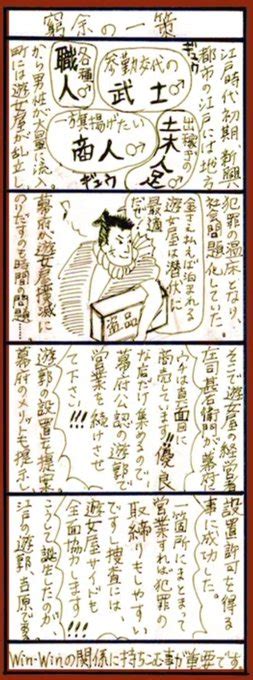 窮余の一策
江戸時代初期、新興
都市の江戸には地方
から男性が大量に流入。
町には遊女屋が乱立し
ギュウ
参勤交代の
武士♂
各種♂
職人
出稼ぎの
土夫人足
一旗揚げたい
商人♂
ギュウ
犯罪の温床となり、
社会問題化していた。
金さえ払えば泊まれる
遊女屋は潜伏に
最適
だぜ
盗品
幕府が遊女屋撲滅に
のりだすのも時間の問題……
そこで遊女屋の経営者
庄司甚右衛門が幕府に
ウチは真面目に
商売しています!!優良
な店だけ集めるので、
幕府公認の遊郭で
営業を続けさせ
て下さい!!!
遊郭の設置を提案。
幕府のメリットも提示し
設置許可を得る
事に成功した。
一箇所にまとまって
営業すれば犯罪の
取締りもしやすい
ですし捜査には、
遊女屋サイドも
全面協力します!!
こうして誕生したのが、
江戸の遊郭、吉原である。
Win-Winの関係に持ちこむ事が重要です。